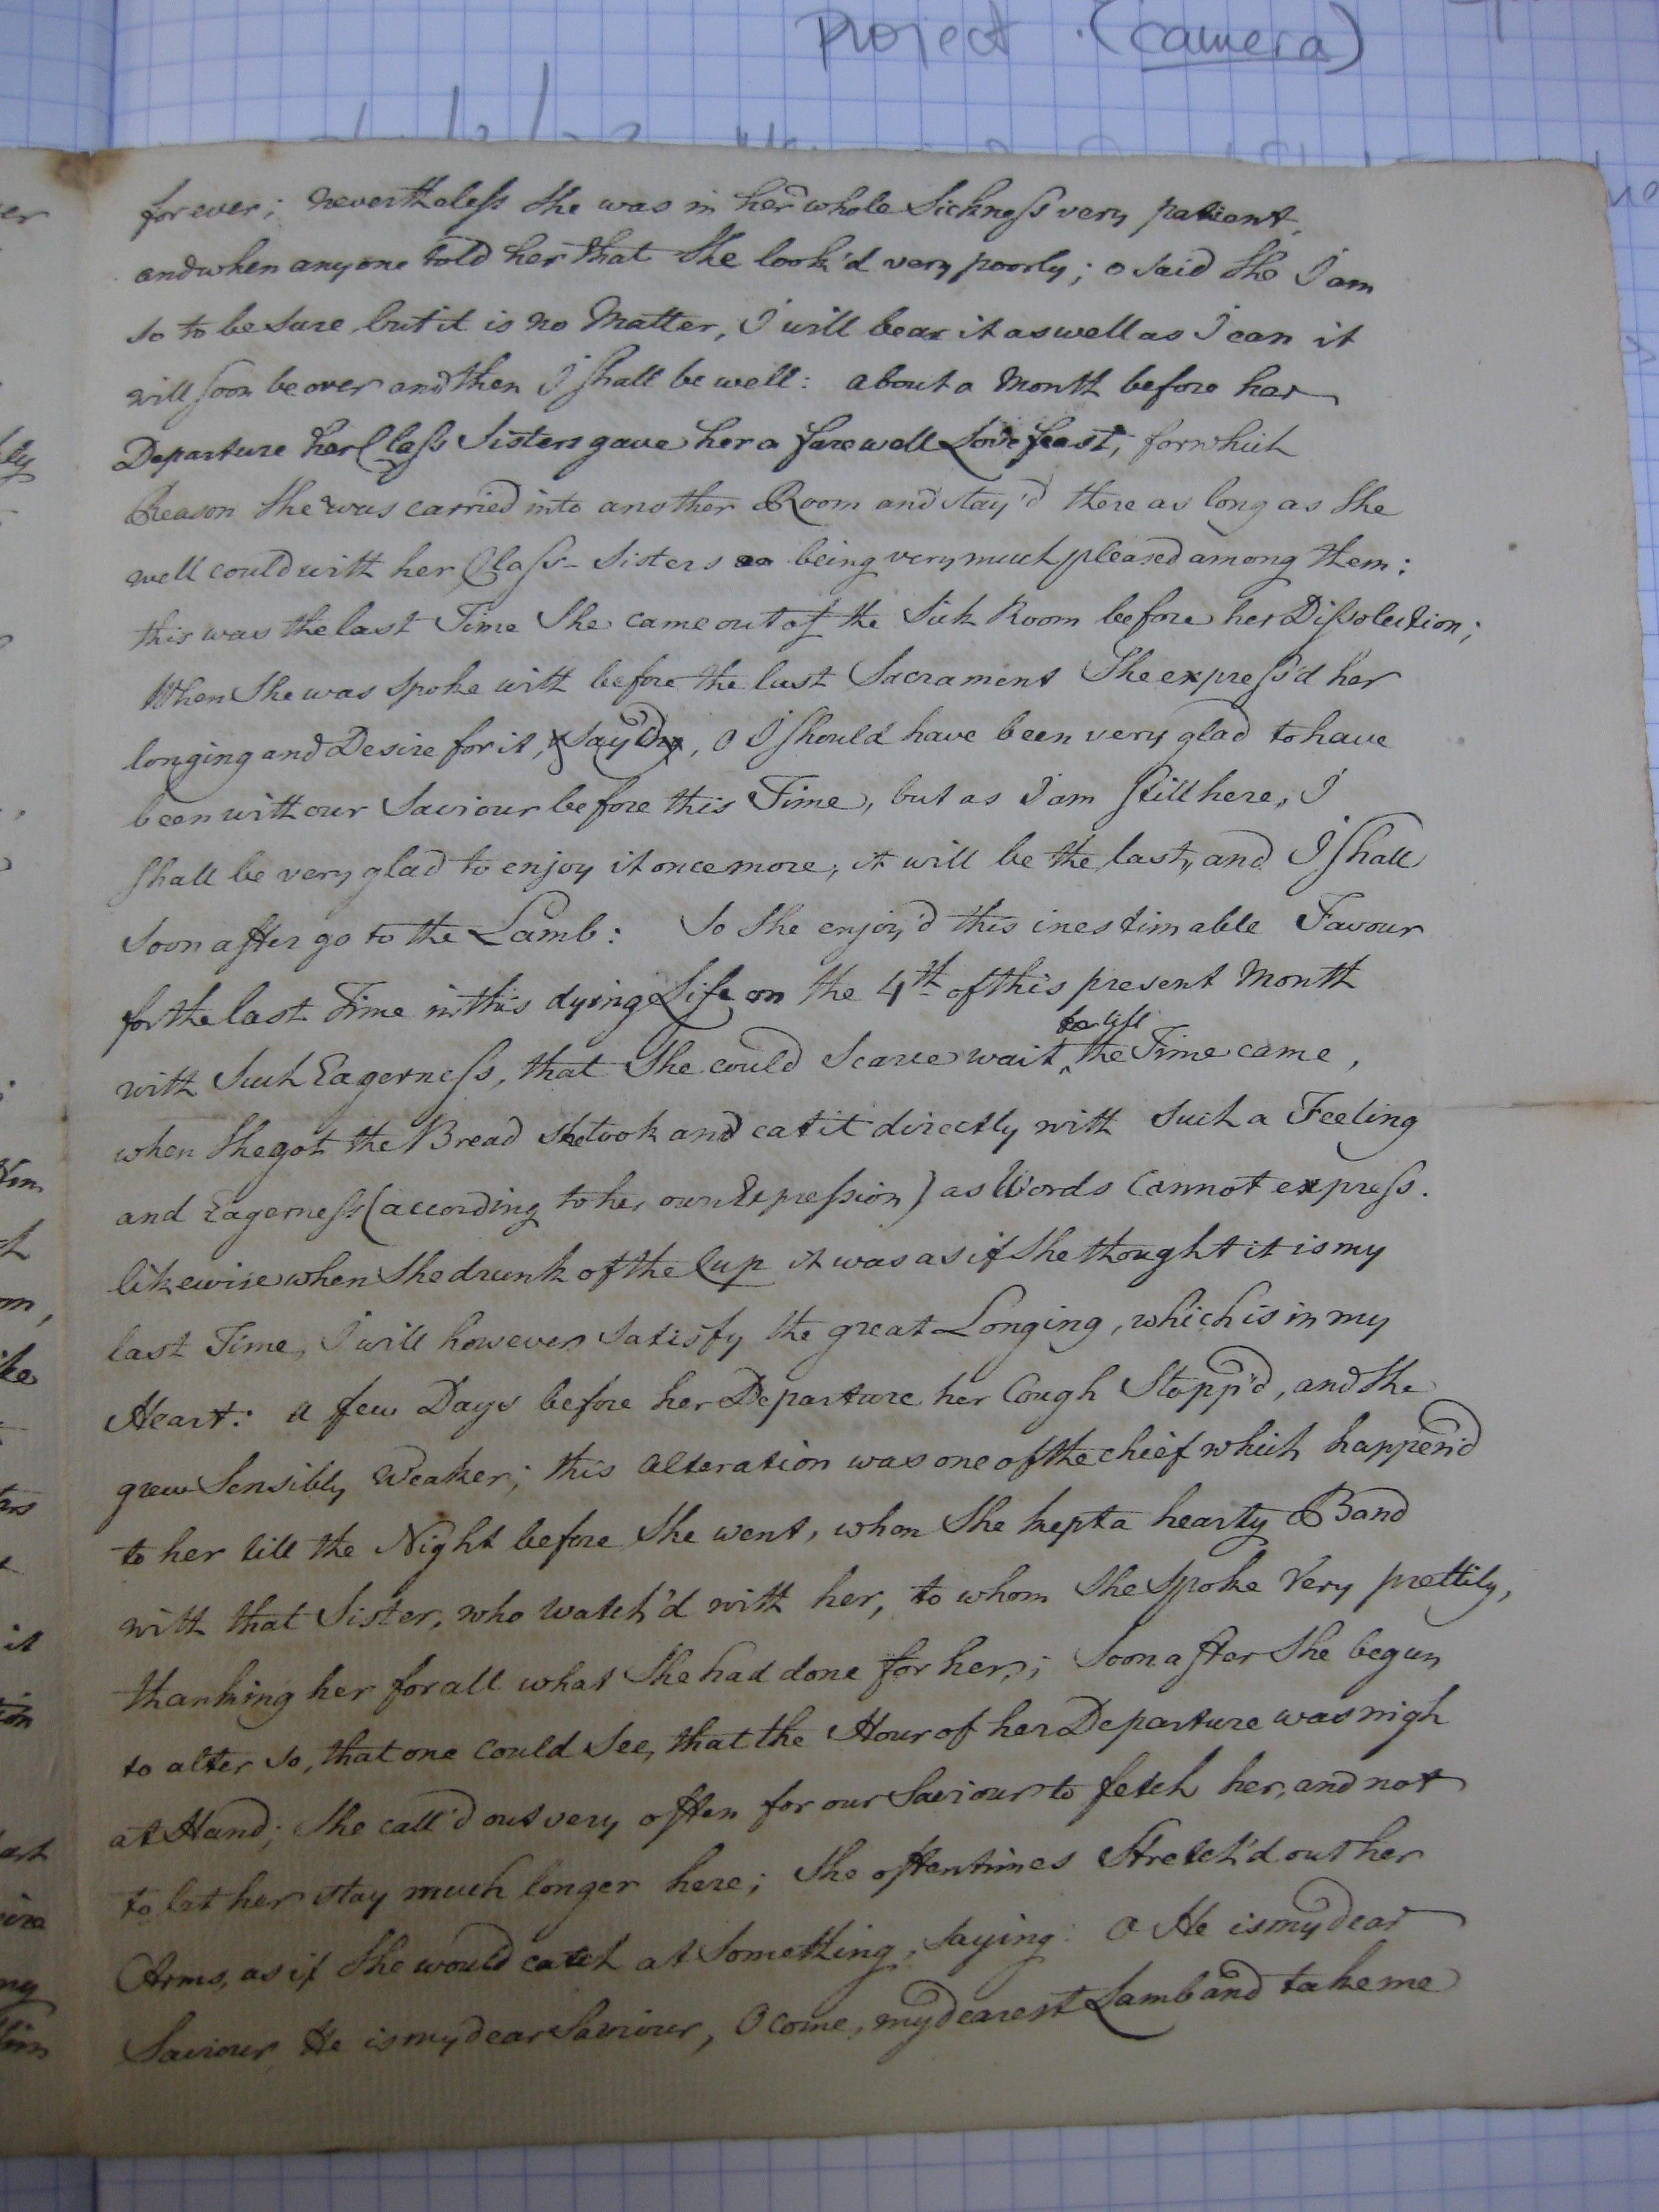 Project . (camera)
for ever; nevertheless She was in her whole Sickness very patient,
and when any one told her that She look'd very poorly; o said She I am
so to be sure, but it is no Matter, I will bear it as well as I can it
will soon be over and then I shall be well: about a Month before her
Departure her Class Sisters gave her a farewell Lovefeast, for which
Reason She was carried into another Room and stay'd there as long as She
well could with her Class-Sisters being very much pleased among them:
this was the last Time She came out of the Sick Room before her Dissolution;
When She was Spoke with before the last Sacrament She express'd her
longing and Desire for it, & say'd, O I should have been very glad to have
been with our Saviour before this Time, but as I am still here, I
shall be very glad to enjoy it once more, it will be the last, and I shall
soon after go to the Lamb: So She enjoy'd this inestimable Favour
for the last Time in this dying Life on the 4th of this present Month
till
with Such Eagerness, that She could Scarce wait the Time came,
when She got the Bread She took and eat it directly with Such a Feeling
and Eagerness (according to her own Expression) as Words Cannot express.
likewise when She drunk of the Cup it was as if She thought it is my
last Time, I will however Satisfy the great Longing, which is in my
Heart: a few Days before her Departure her Cough Stopp'd, and She
grew Sensibly Weaker; this Alteration was one of the chief which happen'd
to her till the Night before She went, when She kept a hearty Band
with that Sister, who Watch'd with her, to whom She Spoke Very prettily,
thanking her for all what She had done for her; Soon after She begun
to alter so, that one Could See, that the Hour of her Departure was nigh
at Hand; She call'd out very often for our Saviour to fetch her, and not
to let her stay much longer here; She oftentimes Stretch'd out her
Arms, as if She would catch at Something, saying: O He is my dear
Saviour He is my dear Saviour, O come, my dearest Lamb and take me